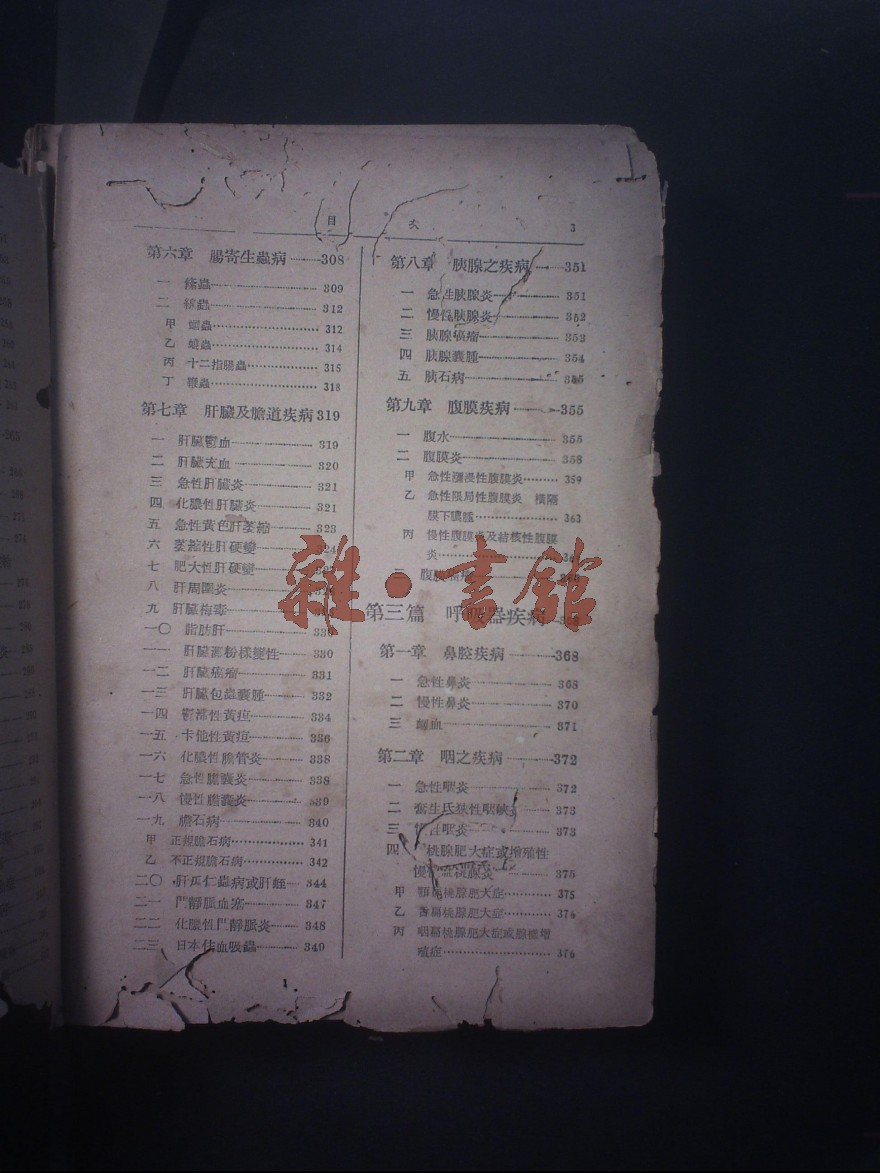 目 次 3
第六章 腸寄生蟲病 308
一 絛蟲 309
二 線蟲 312
甲 蛔蟲 312
乙 蟯蟲 314
丙 十二指腸蟲 315
丁 鞭蟲 318
第七章 肝臟及膽道疾病 319
一 肝臟鬱血 319
二 肝臟充血 320
三 急性肝臟炎 321
四 化膿性肝臟炎 321
五 急性黃色肝萎縮 323
六 萎縮性肝硬變 324
七 肥大性肝硬變
八 肝周圍炎
九 肝臟梅毒
一〇 脂肪肝 330
一一 肝臟澱粉樣變性 330
一二 肝臟癌瘤 331
一三 肝臟包蟲囊腫 332
一四 鬱滯性黃疸 334
一五 卡他性黃疸 336
一六 化膿性膽管炎 338
一七 急性膽囊炎 338
一八 慢性膽囊炎 339
一九 膽石病 340
甲 正規膽石病 341
乙 不正規膽石病 342
二〇 肝瓜仁蟲病或肝蛭 344
二一 門靜脈血塞 347
二二 化膿性門靜脈炎 348
二三 日本住血吸蟲 349
第八章 胰腺之疾病 351
一 急性胰腺炎 351
二 慢性胰腺炎 352
三 胰腺癌瘤 353
四 胰腺囊腫 354
五 胰石病 355
第九章 腹膜疾病 355
一 腹水 355
二 腹膜炎 358
甲 急性瀰漫性腹膜炎 359
乙 急性限局性腹膜炎 橫隔
膜下膿腫 363
丙 慢性腹膜炎及結核性腹膜
炎
三 腹膜癌瘤
第三篇 呼吸器疾病 368
第一章 鼻腔疾病 368
一 急性鼻炎 368
二 慢性鼻炎 370
三 衄血 371
第二章 咽之疾病 372
一 急性咽炎 372
二 奮生氏狄性咽峽 373
三 慢性咽炎 373
四 桃腺肥大症或增殖性
慢性扁桃腺炎 375
甲 顎扁桃腺肥大症 375
乙 舌扁桃腺肥大症 376
丙 咽扁桃腺肥大症或腺樣增
殖症 376
雜·書館